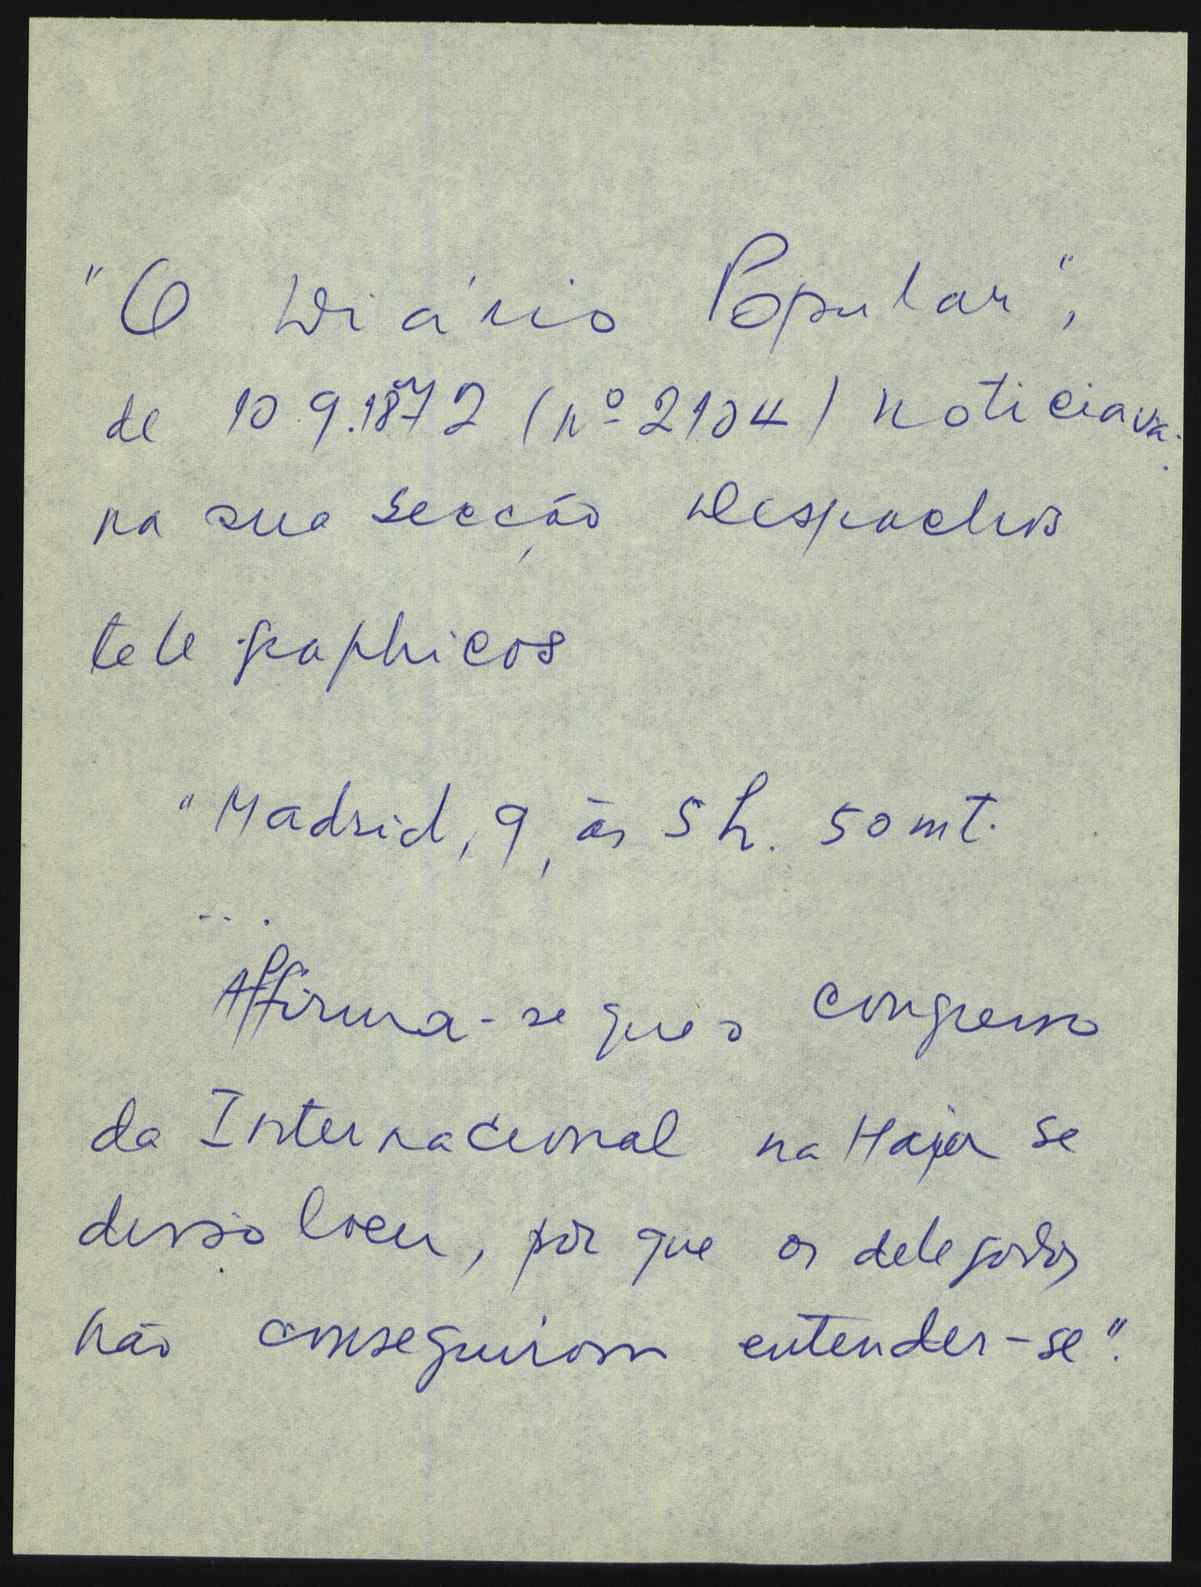 "O Diário Popular",
de 10.9.1872 (nº 2104) noticiava:
na sua secção Despachos
telegraphicos
"Madrid, 9, às 5 h. 50 mt.
...
Affirma-se que o congresso
da Internacional na Haya se
dissolveu, por que os delegados
não conseguiram entender-se".